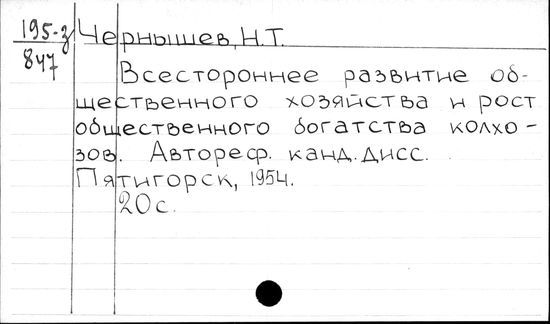 195-з
847
Чернышев, Н.Т.
Всестороннее развитие об-
щественного хозяйства и рост
общественного богатства колхо-
зов. Автореф. канд. дисс.
Пятигорск, 1954.
20 с.